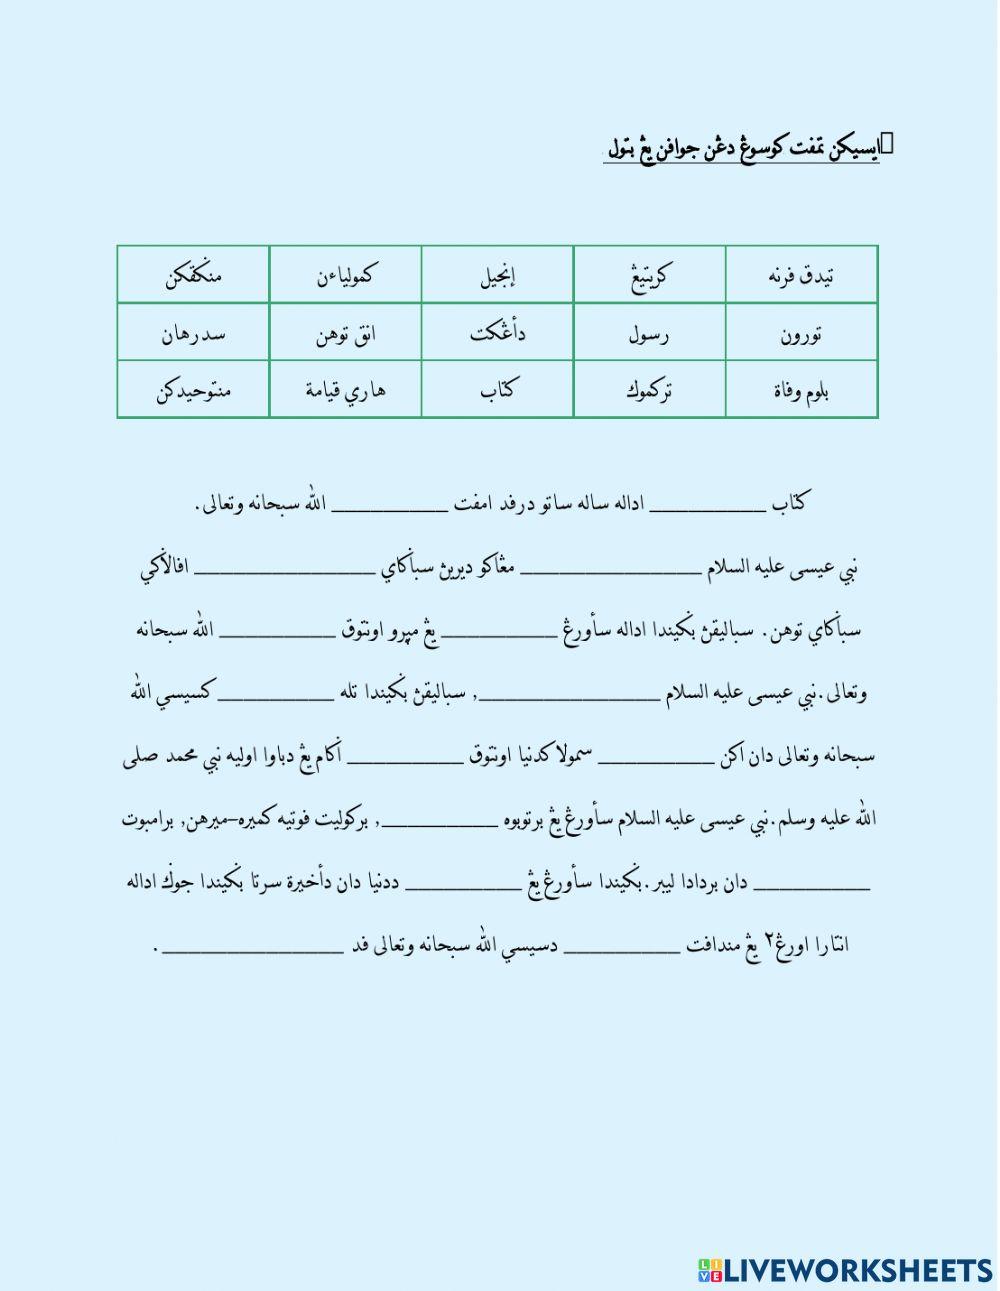 ايسيكن تمفت كوسوڠ دڠن جوافن يڠ بتول
تيدق فرنه كريتيڠ إنجيل كمولياءن منڬقكن
تورون رسول دأڠكت انق توهن سدرهان
بلوم وفاة تركموك كتاب هاري قيامة منتوحيدكن
كتاب _________ اداله ساله ساتو درفد امفت _________ الله سبحانه وتعالى.
نبي عيسى عليه السلام ______________ مڠاكو ديرين سباڬاي ______________ افالاڬي
سباڬاي توهن. سباليقن بڬيندا اداله سأورڠ _________ يڠ مڽرو اونتوق _________ الله سبحانه
وتعالى.نبي عيسى عليه السلام ______________, سباليقن بڬيندا تله _________كسيسي الله
سبحانه وتعالى دان اكن _________ سمولا كدنيا اونتوق _________ اڬام يڠ دباوا اوليه نبي محمد صلى
الله عليه وسلم.نبي عيسى عليه السلام سأورڠ يڠ برتوبوه _________, بركوليت فوتيه كميره-ميرهن, برامبوت
_________ دان بردادا ليبر.بڬيندا سأورڠ يڠ _________ ددنيا دان دأخيرة سرتا بڬيندا جوڬ اداله
انتارا اورڠ٢ يڠ مندافت _________ دسيسي الله سبحانه وتعالى فد ______________.
LIVEWORKSHEETS